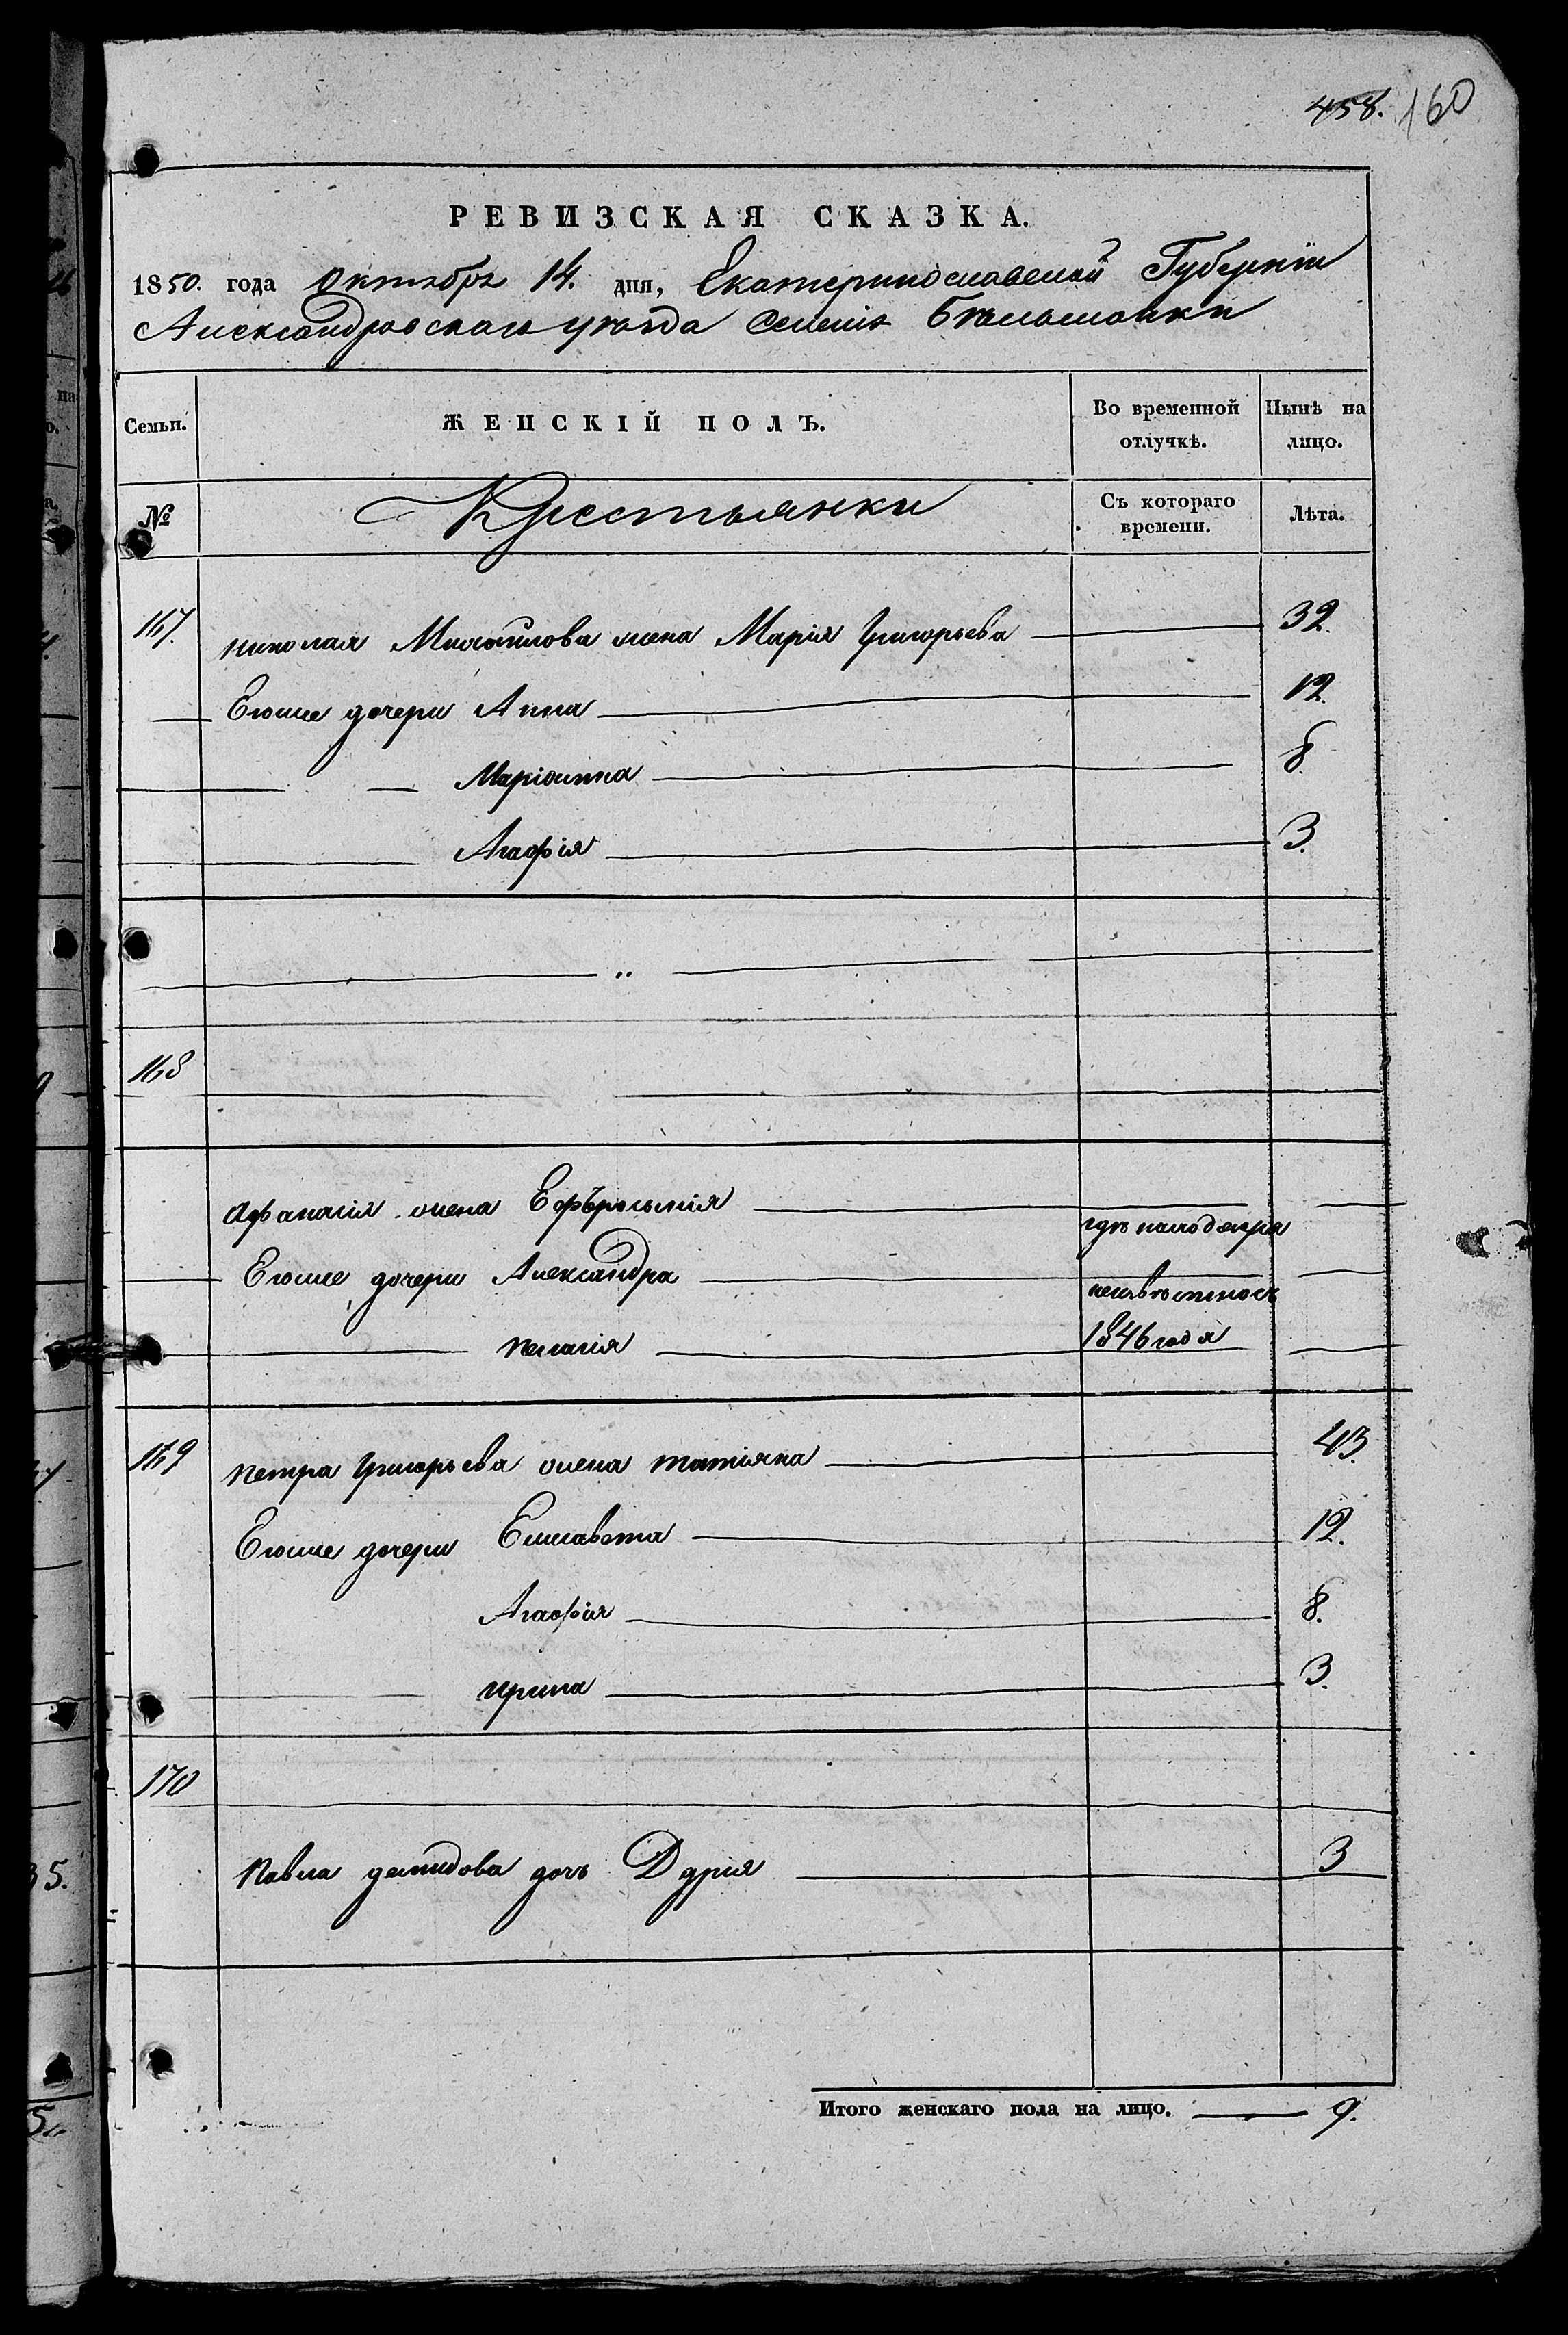 458. 160
РЕВИЗСКАЯ СКАЗКА.
1850. года Октября 14. дня, Екатеринославской Губернiи
Александровскаго уѣзда Селенiя Бѣльманки
Семьи. ЖЕНСКIЙ ПОЛЪ. Во временной отлучкѣ. Нынѣ на лицо.
№ Крестьянки Съ котораго времени. Лѣта.
167. николая Михайлова жена Марiя Григорьева 32.
Егоже дочери Анна 12.
Марiанна 8.
Агафiя 3.
168
Афанасiя жена Ефъросинiя
гдѣ находятся
Егоже дочери Александра
неизвѣстно съ
пелагiя 1846 года
169 петра Григорьева жена татiяна 43.
Егоже дочери Елисавета 12.
Агафiя 8.
ирина 3.
170
павла демидова дочь Дарiя 3
Итого женскаго пола на лицо. 9.